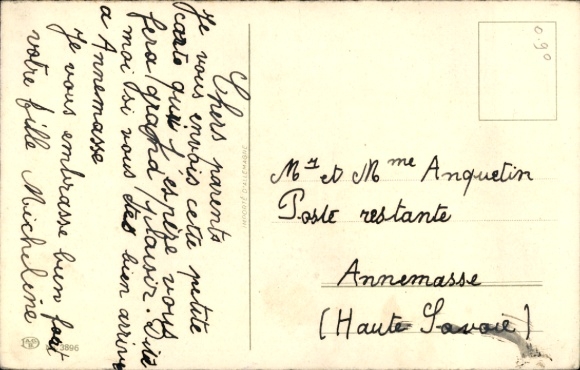 Chers parents
Je vous envois cette petite
carte qui j'espère vous
fera grand plaisir. Dites
moi si vous êtes bien arrivés
a Annemasse
Je vous embrasse bien fort
votre fille Micheline
Mr et Mme Anquetin
Poste restante
Annemasse
(Haute Savoie)
0.90
3896